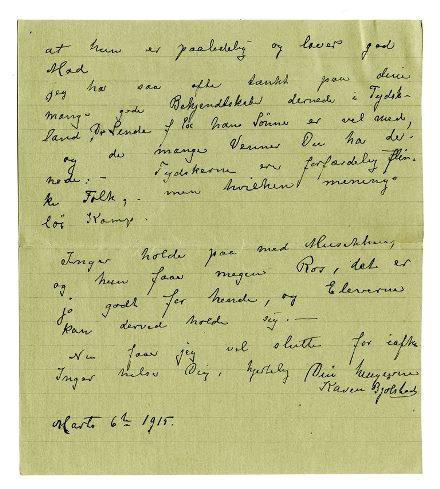 at hun er paalidelig og laver god
Mad
jeg har saa ofte tænkt paa dine
mange gode Bekjendtskab dernede i Tydsk-
land, Dr Linde f Ex han Sønne er vel med,
og de mange Venner Du har der-
nede: - Tydskerne er forfærdelig flin-
ke Folk, - men hvilken menings-
løs Kamp.
Inger holde paa med Musikken,
og hun faar megen Ros, det er
jo godt for hende, og Eleverne
kan derved holde sig. -
Nu faar jeg vel slutte for iaften
Inger hilse Dig, hjertelig Din hengivne
Karen Bjølstad
Marts 6te 1915.